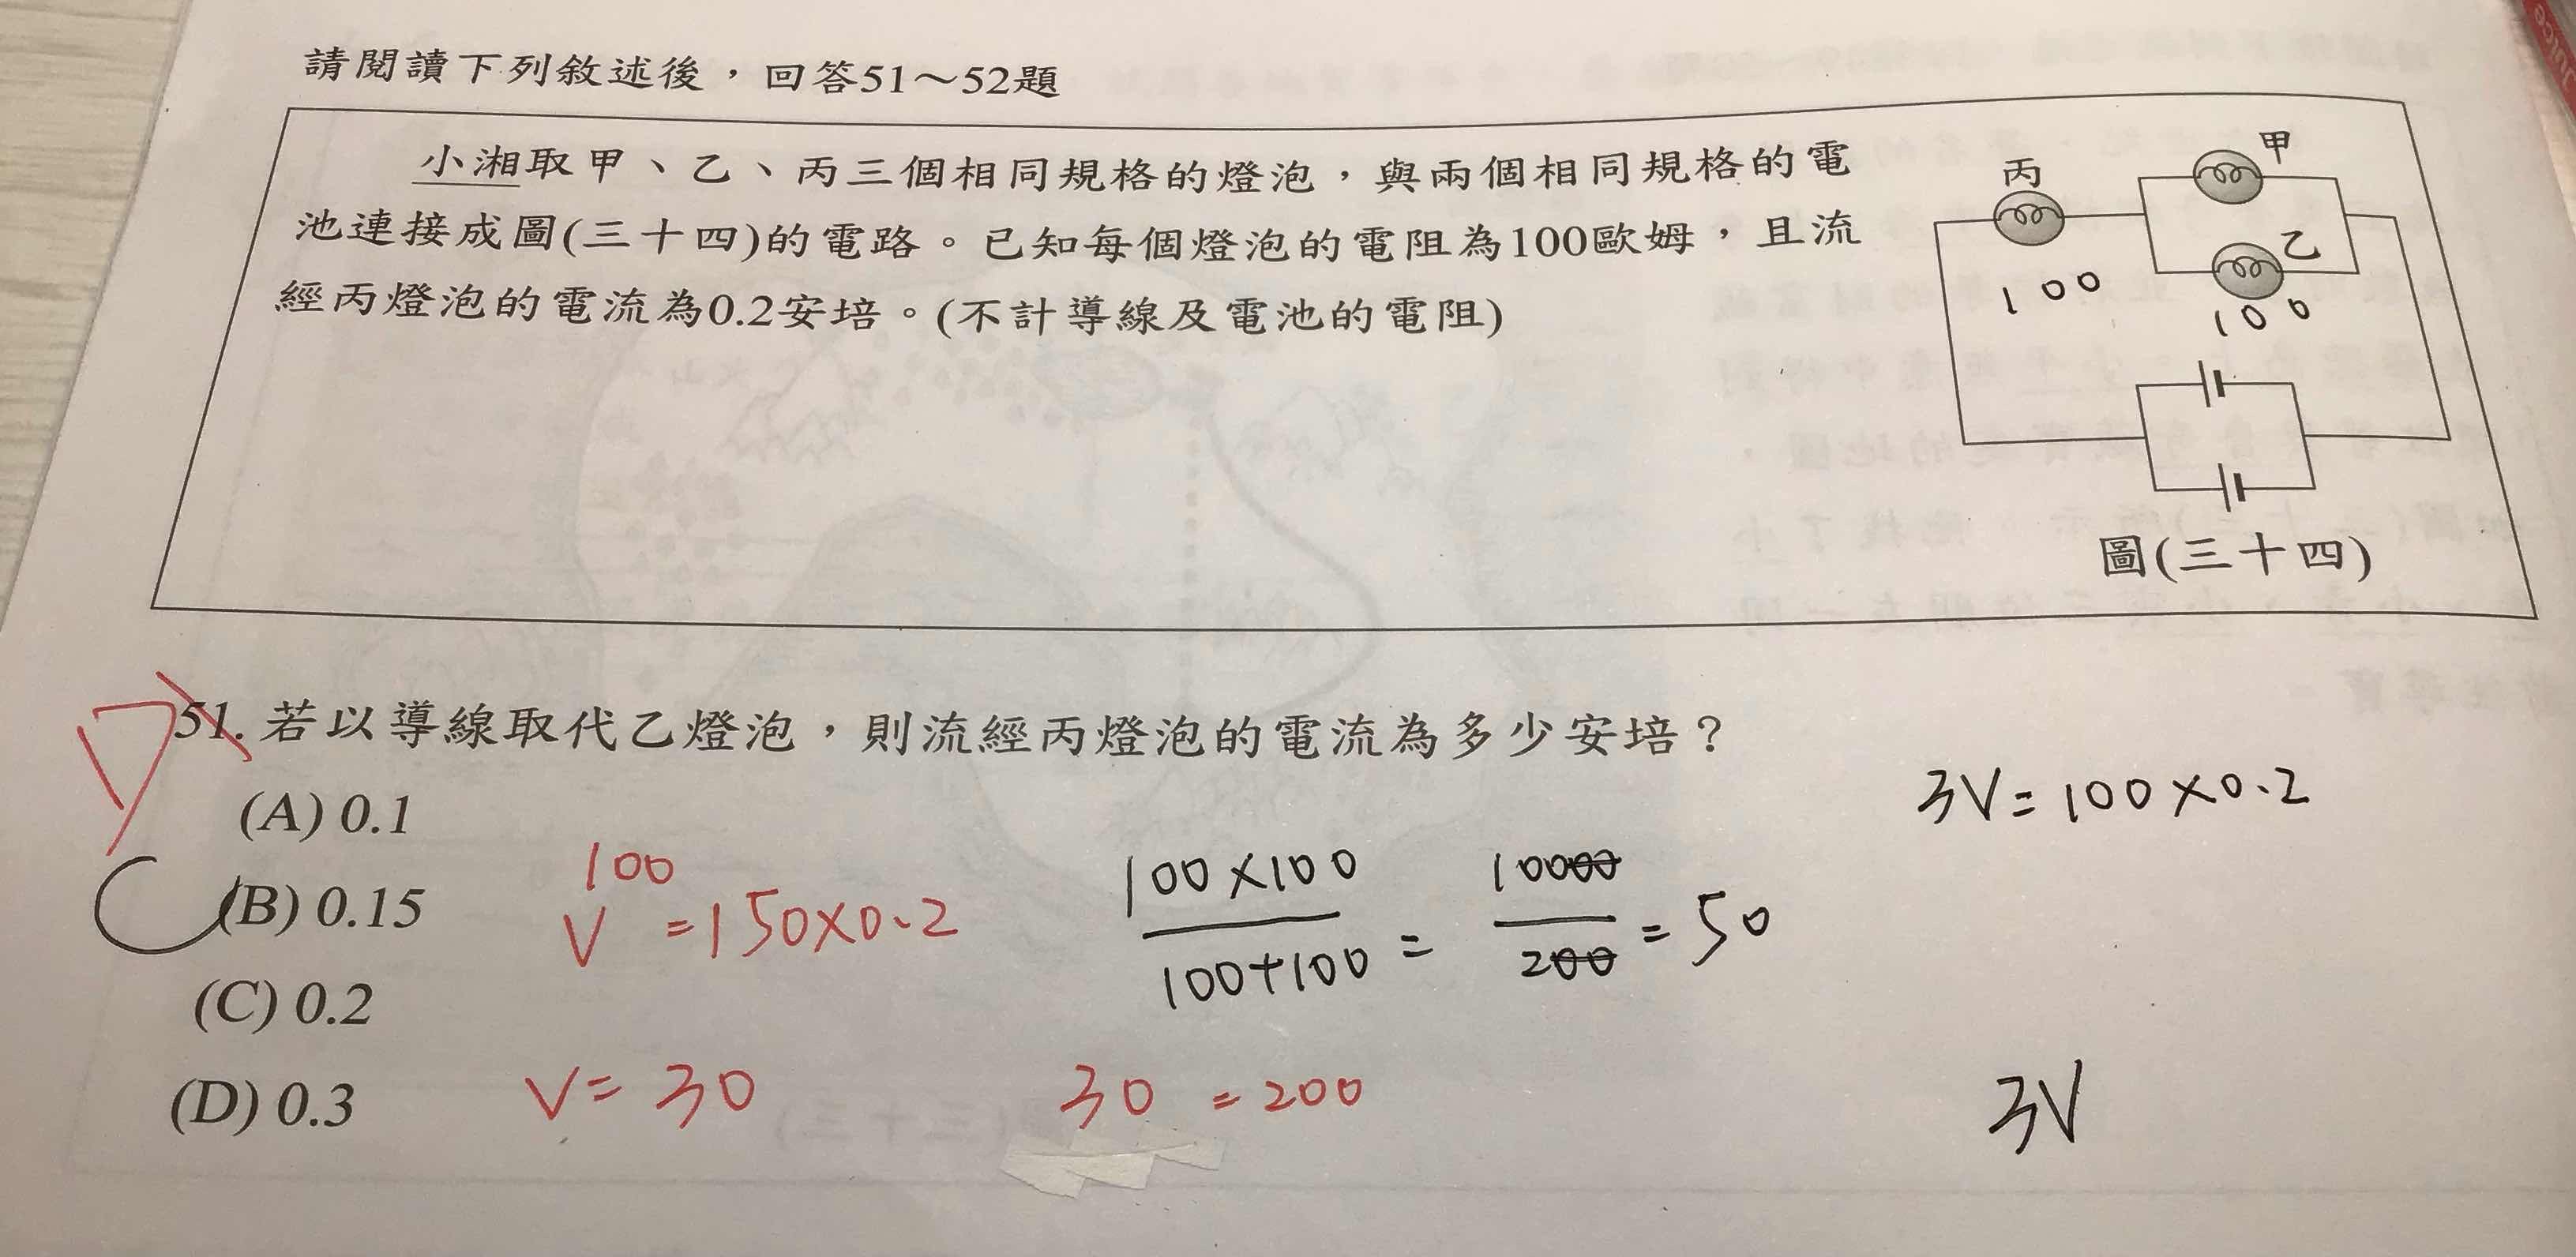 請閱讀下列敘述後，回答51～52題
小湘取甲、乙、丙三個相同規格的燈泡，與兩個相同規格的電
池連接成圖(三十四)的電路。已知每個燈泡的電阻為100歐姆，且流
經丙燈泡的電流為0.2安培。(不計導線及電池的電阻)
甲
丙
乙
100
100
圖(三十四)
51. 若以導線取代乙燈泡，則流經丙燈泡的電流為多少安培？
(A) 0.1
(B) 0.15
(C) 0.2
(D) 0.3
3V = 100×0.2
100
V = 150×0.2
100×100
100+100
=
10000
200
= 50
V = 30
30 = 200
3V